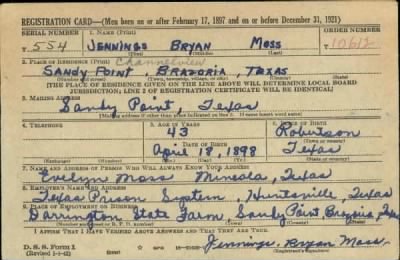 REGISTRATION CARD—(Men born on or after February 17, 1897 and on or before December 31, 1921)
SERIAL NUMBER 1. NAME (Print) ORDER NUMBER
T 554 JENNINGS BRYAN MOSS 10612
(First) (Middle) (Last)
2. PLACE OF RESIDENCE (Print) Channelview
SANDY POINT BRAZORIA, TEXAS
[THE PLACE OF RESIDENCE GIVEN ON THE LINE ABOVE WILL DETERMINE LOCAL BOARD
JURISDICTION; LINE 2 OF REGISTRATION CERTIFICATE WILL BE IDENTICAL]
3. MAILING ADDRESS
Sandy Point, Texas
[Mailing address if other than place indicated on line 2. If same insert word same]
4. TELEPHONE 5. AGE IN YEARS 6. PLACE OF BIRTH
43 Robertson
DATE OF BIRTH
April 18, 1898 Texas
(Exchange) (Number) (Mo.) (Day) (Yr.)
7. NAME AND ADDRESS OF PERSON WHO WILL ALWAYS KNOW YOUR ADDRESS
Evelyn Moss Mineola, Texas
8. EMPLOYER'S NAME AND ADDRESS
Texas Prison System, Huntsville, Texas
9. PLACE OF EMPLOYMENT OR BUSINESS
Darrington State Farm, Sandy Point Brazoria, Texas
I AFFIRM THAT I HAVE VERIFIED ABOVE ANSWERS AND THAT THEY ARE TRUE.
D. S. S. Form 1
(Revised 1-1-42)
Jennings Bryan Moss